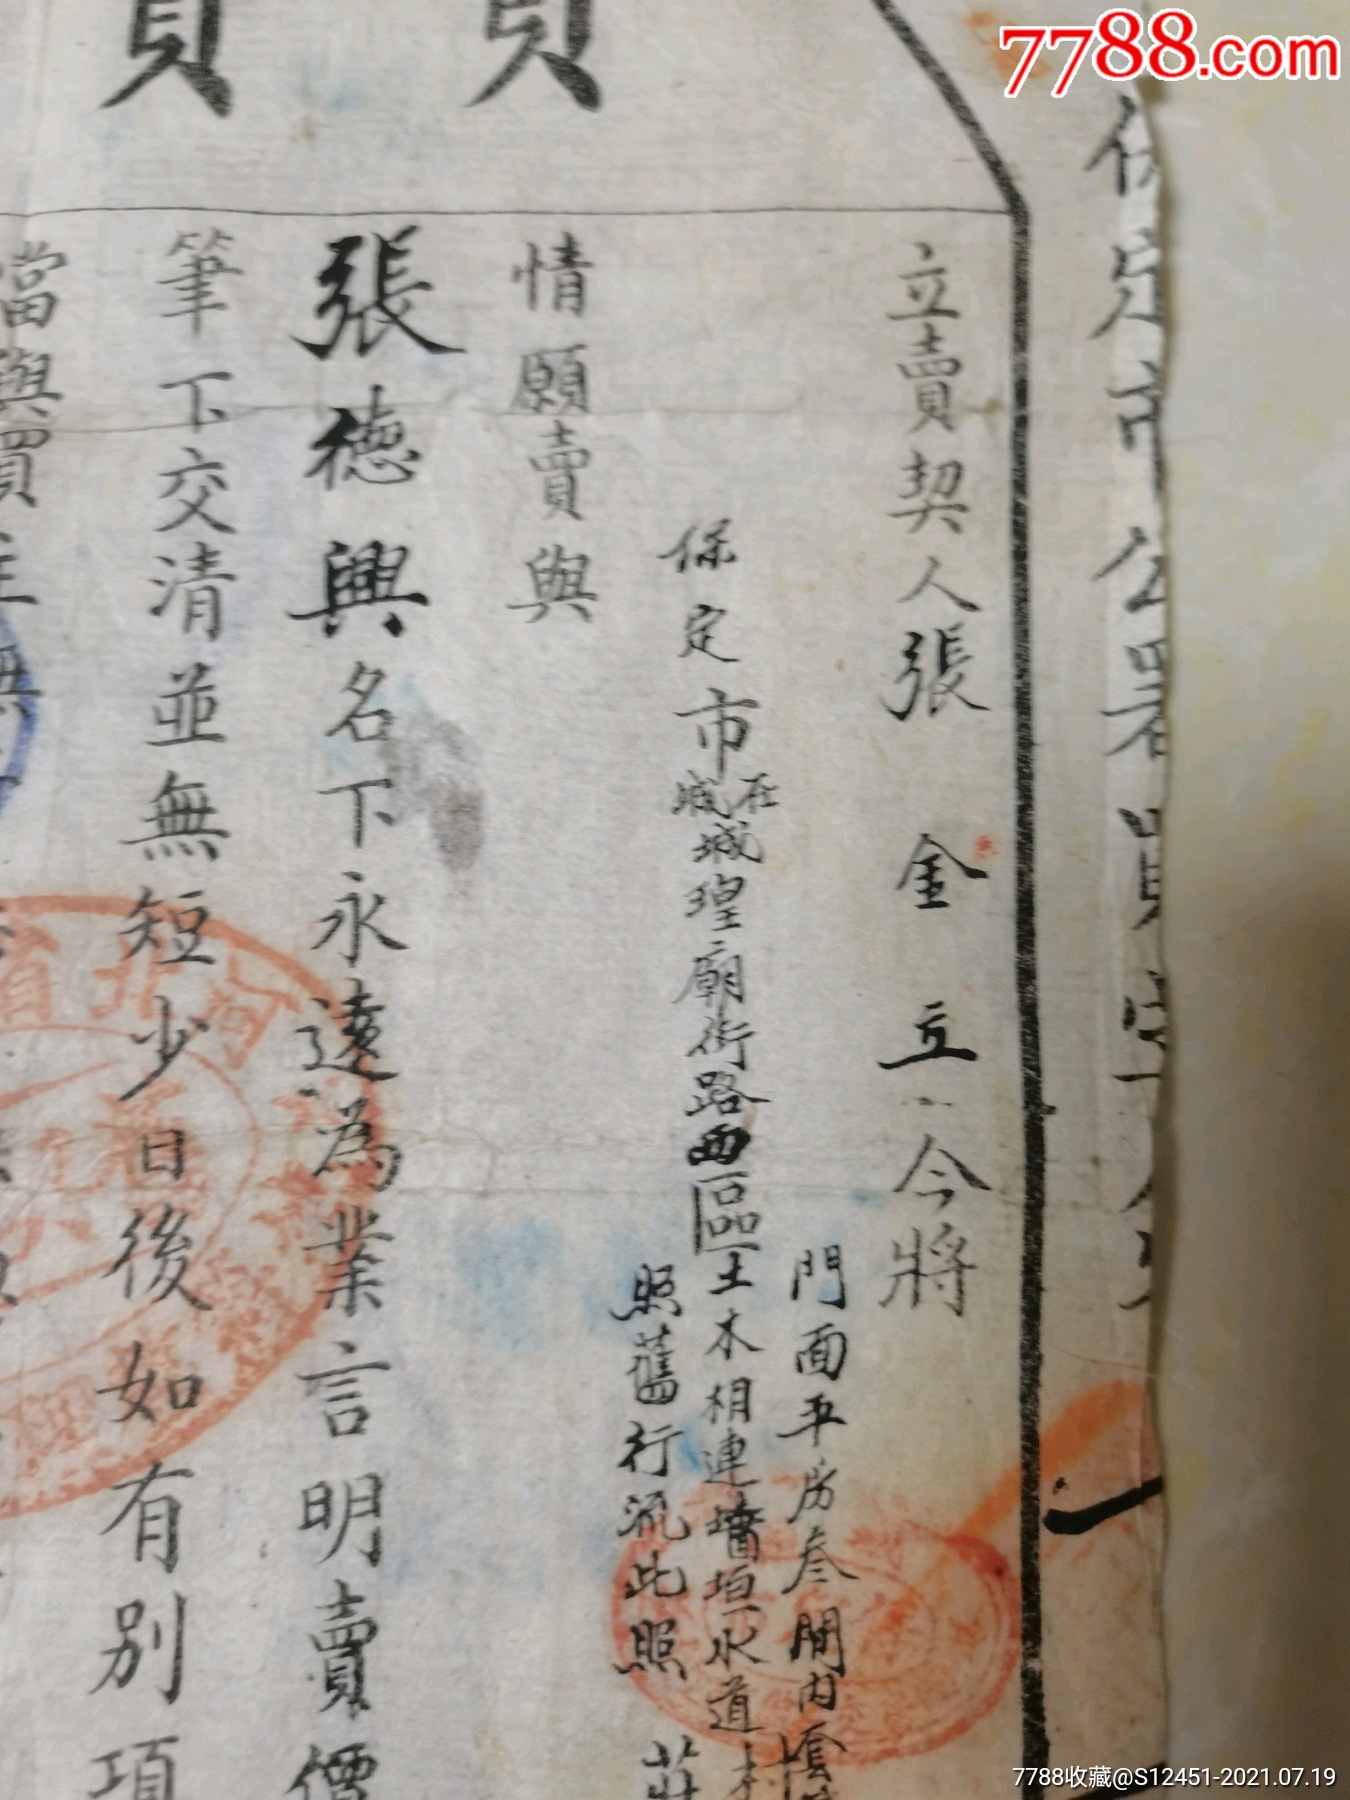 7788.com
保定市公署買
立賣契人張金立今將
門面平房叁間內
保定市在城城隍廟街路西區土木相連墻垣水道村
照舊行流此照莊
情願賣與
張德興名下永遠為業言明賣價
筆下交清並無短少日後如有別項
當與買主無
河北省
7788收藏@S12451-2021.07.19